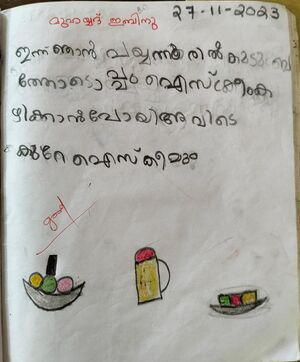 മുഹമ്മദ് ഇബ്നു
27-11-2023
ഇന്ന് ഞാൻ പയ്യന്നൂരിൽ കുടുംബ
ത്തോടൊപ്പം ഐസ്ക്രീംക
ഴിക്കാൻപോയിഅവിടെ
കുറേ ഐസ്ക്രീമും